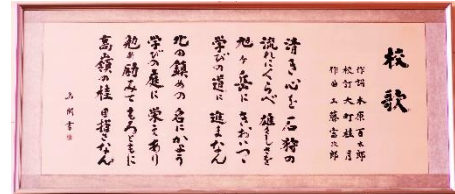 校歌
作詞 木原百太郎
校訂 大町桂月
作曲 工藤富次郎
清き心を石狩の
流れにくらべ雄々しさを
旭ヶ岳にきおいつゝ
学びの道に進まなん
北の鎮めの名にかよう
学びの庭に栄えあり
勉め励みてもろともに
高嶺の桂目指さなん